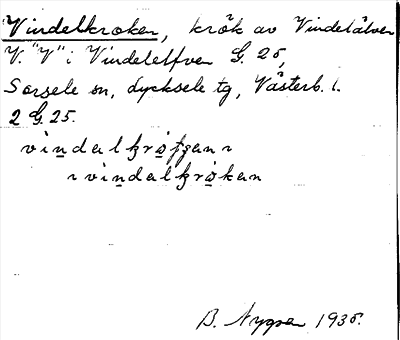 Vindelkroken, krök av Vindelälven
V. "V" i Vindelelfven G. 25,
Sorsele sn, Lycksele tg, Västerb. l.
2 G. 25.
ı vindalkrokan
B. Nygren 1935.